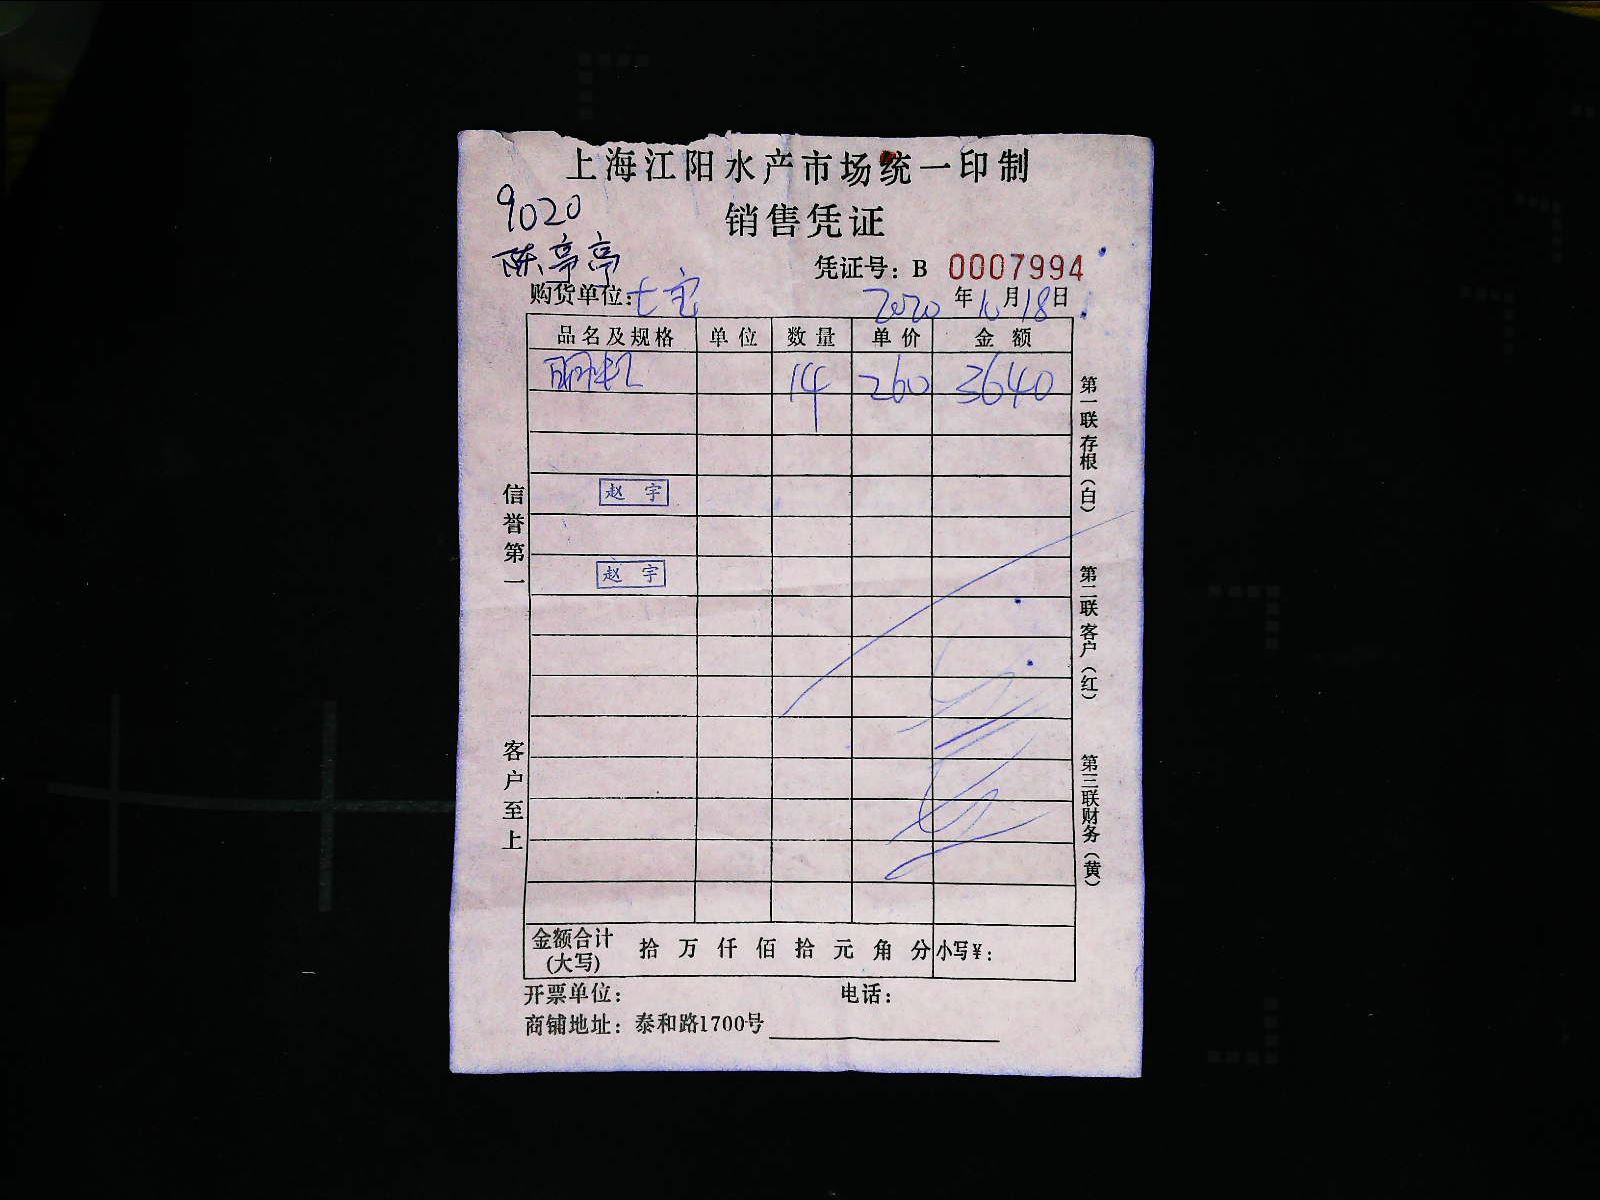 上海江阳水产市场统一印制
9020
销售凭证
陈亭亭
凭证号：B 0007994
购货单位：七宝 2020年10月18日
品名及规格 单位 数量 单价 金额
14 260 3640
赵宇
赵宇
信誉第一
客户至上
第一联存根（白）
第二联客户（红）
第三联财务（黄）
金额合计(大写) 拾 万 仟 佰 拾 元 角 分 小写¥：
开票单位： 电话：
商铺地址：泰和路1700号